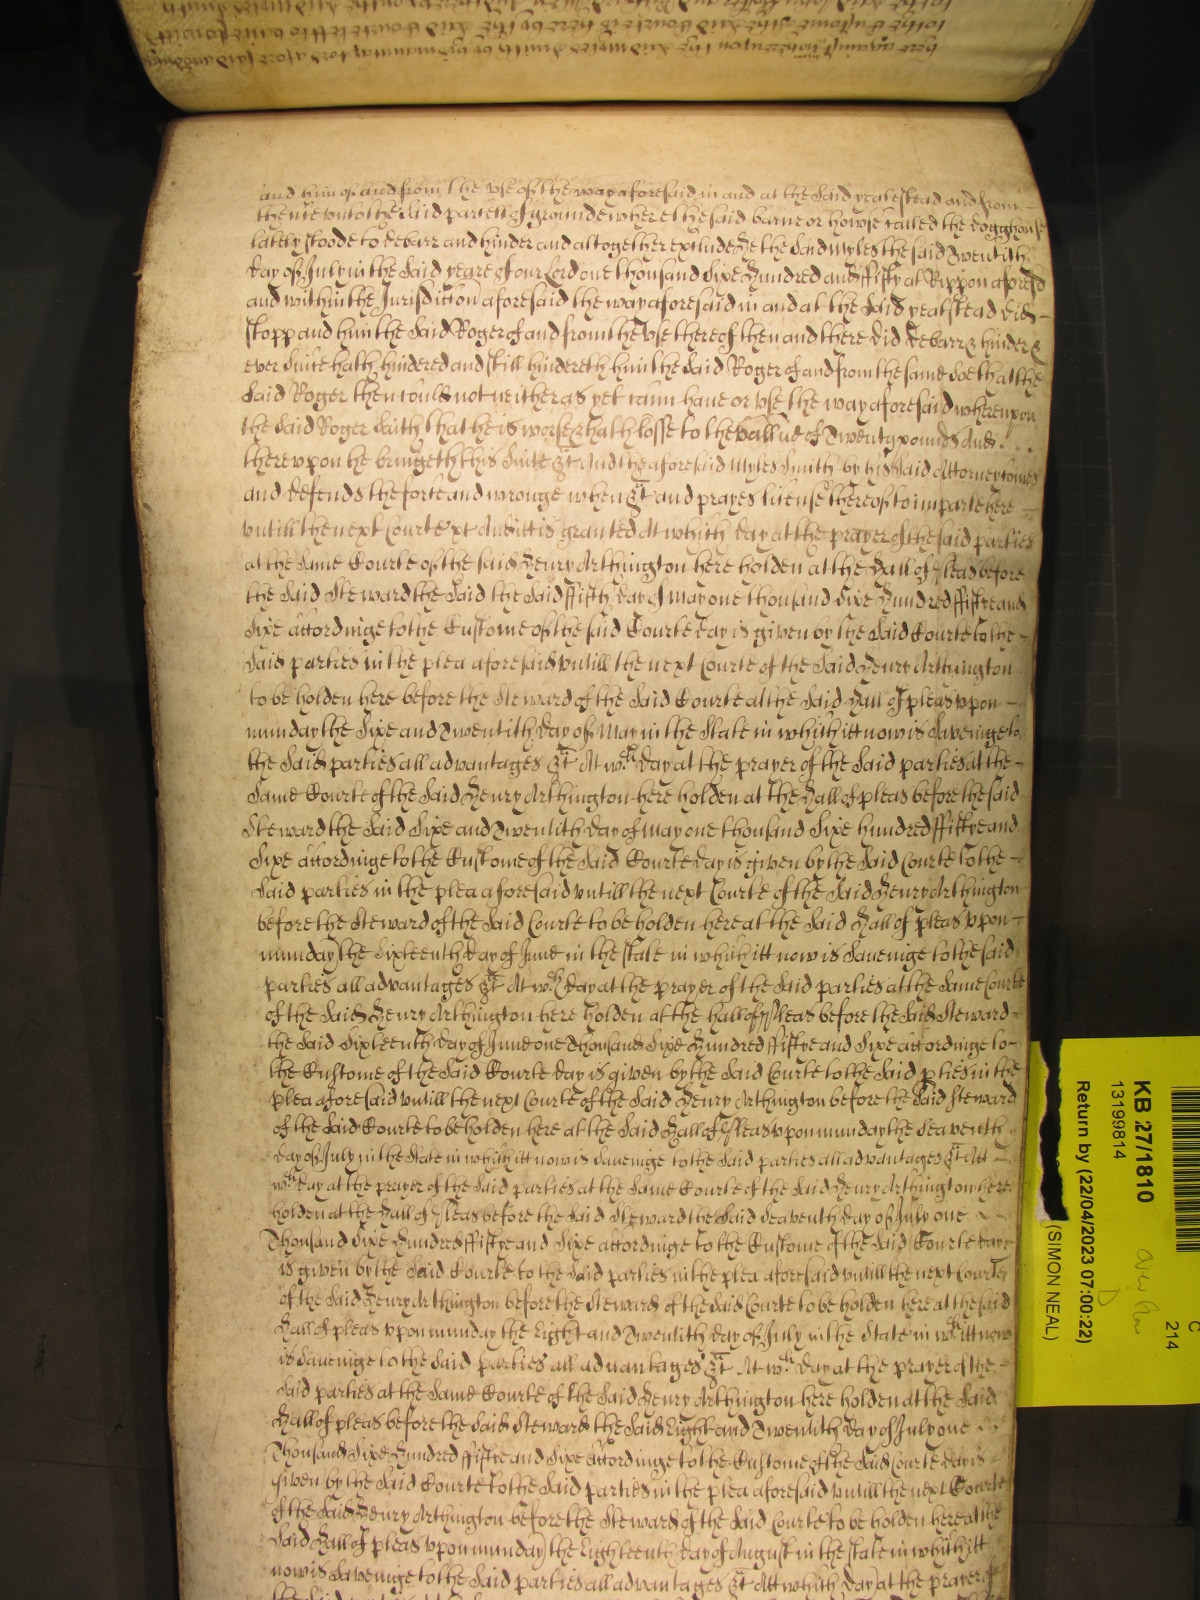 and him of and from the vse of the way aforesaid in and at the said yeatestead and from
thence vnto the said parcell of grounde where the said barne or howse called the dogghouse
lately stoode to debarr and hinder and altogether exclude he the said Myles the said Twentith
day of July in the said yeare of our Lord one thousand Sixe Hundred and ffifty at Rippon aforesd
and within the Jurisdiccon aforesaid the way aforesaid in and at the said yeatstead did
stopp and him the said Roger of and from the vse thereof then and there did debarr & hinder &
ever since hath hindered and still hindereth him the said Roger of and from the same Soe that the
said Roger then could not neither as yet cann haue or vse the way aforesaid wherevpon
the said Roger saith that he is worse & hath losse to the vallue of Twenty pounds And
therevpon he bringeth this suite &c And the aforesaid Myles Smith by his said Attorney comes
and defends the force and wronge when &c and prayes license thereof to imparle here
vntill the next Courte &c And itt is granted At which day at the prayer of the said parties
at the same Courte of the said Henry Arthington here holden at the Hall of pleas before
the said Steward the said the said ffifth day of may one thousand Sixe Hundred ffiftye and
Sixe accordinge to the Custome of the said Courte day is given by the said Courte to the
said parties in the plea aforesaid vntill the next Courte of the said Henry Arthington
to be holden here before the Steward of the said Courte at the said Hall of pleas vpon
munday the Sixe and Twentith day of May in the State in which itt now is saveinge to
the said parties all advantages &c At wch day at the prayer of the said parties at the
same Courte of the said Henry Arthington here holden at the Hall of pleas before the said
Steward the said Sixe and Twentith day of May one thousand Sixe hundred ffiftye and
Sixe accordinge to the Custome of the said Courte day is given by the said Courte to the
said parties in the plea aforesaid vntill the next Courte of the said Henry Arthington
before the Steward of the said Courte to be holden here at the said Hall of pleas vpon
munday the Sixteenth day of June in the state in which itt now is saueinge to the said
parties all advantages &c At wch day at the prayer of the said parties at the same Courte
of the said Henry Arthington here holden at the hall of pleas before the said Steward
the said Sixteenth day of June one Thousand Sixe Hundred ffiftye and Sixe accordinge to
the Custome of the said Courte day is given by the said Courte to the said pties in the
plea aforesaid vntill the next Courte of the said Henry Arthington before the said Steward
of the said Courte to be holden here at the said Hall of pleas vpon munday the Seaventh
day of July in the state in which itt now is saueinge to the said parties all advantages &c At
wch day at the prayer of the said parties at the same Courte of the said Henry Arthington here
holden at the Hall of pleas before the said Steward the said Seaventh day of July one
Thousand Sixe Hundred ffiftye and Sixe accordinge to the Custome of the said Courte daye
is given by the said Courte to the said parties in the plea aforesaid vntill the next Courte
of the said Henry Arthington before the Steward of the said Courte to be holden here at the said
Hall of pleas vpon munday the Eight and Twentith day of July in the State in wch itt now
is saueinge to the said parties all aduantages &c At wch day at the prayer of the
said parties at the same Courte of the said Henry Arthington here holden at the said
Hall of pleas before the said Steward the said Eight and Twentith day of July one
Thousand Sixe Hundred ffiftye and Sixe accordinge to the Custome of the said Courte day is
given by the said Courte to the said parties in the plea aforesaid vntill the next Courte
of the said Henry Arthington before the Steward of the said Courte to be holden here at the
said Hall of pleas vpon munday the Eighteenth day of August in the state in which itt
now is saveinge to the said parties all advantages &c Att which day at the prayer of
KB 27/1810
13199814
Return by (22/04/2023 07:00:22)
(SIMON NEAL)
C
214